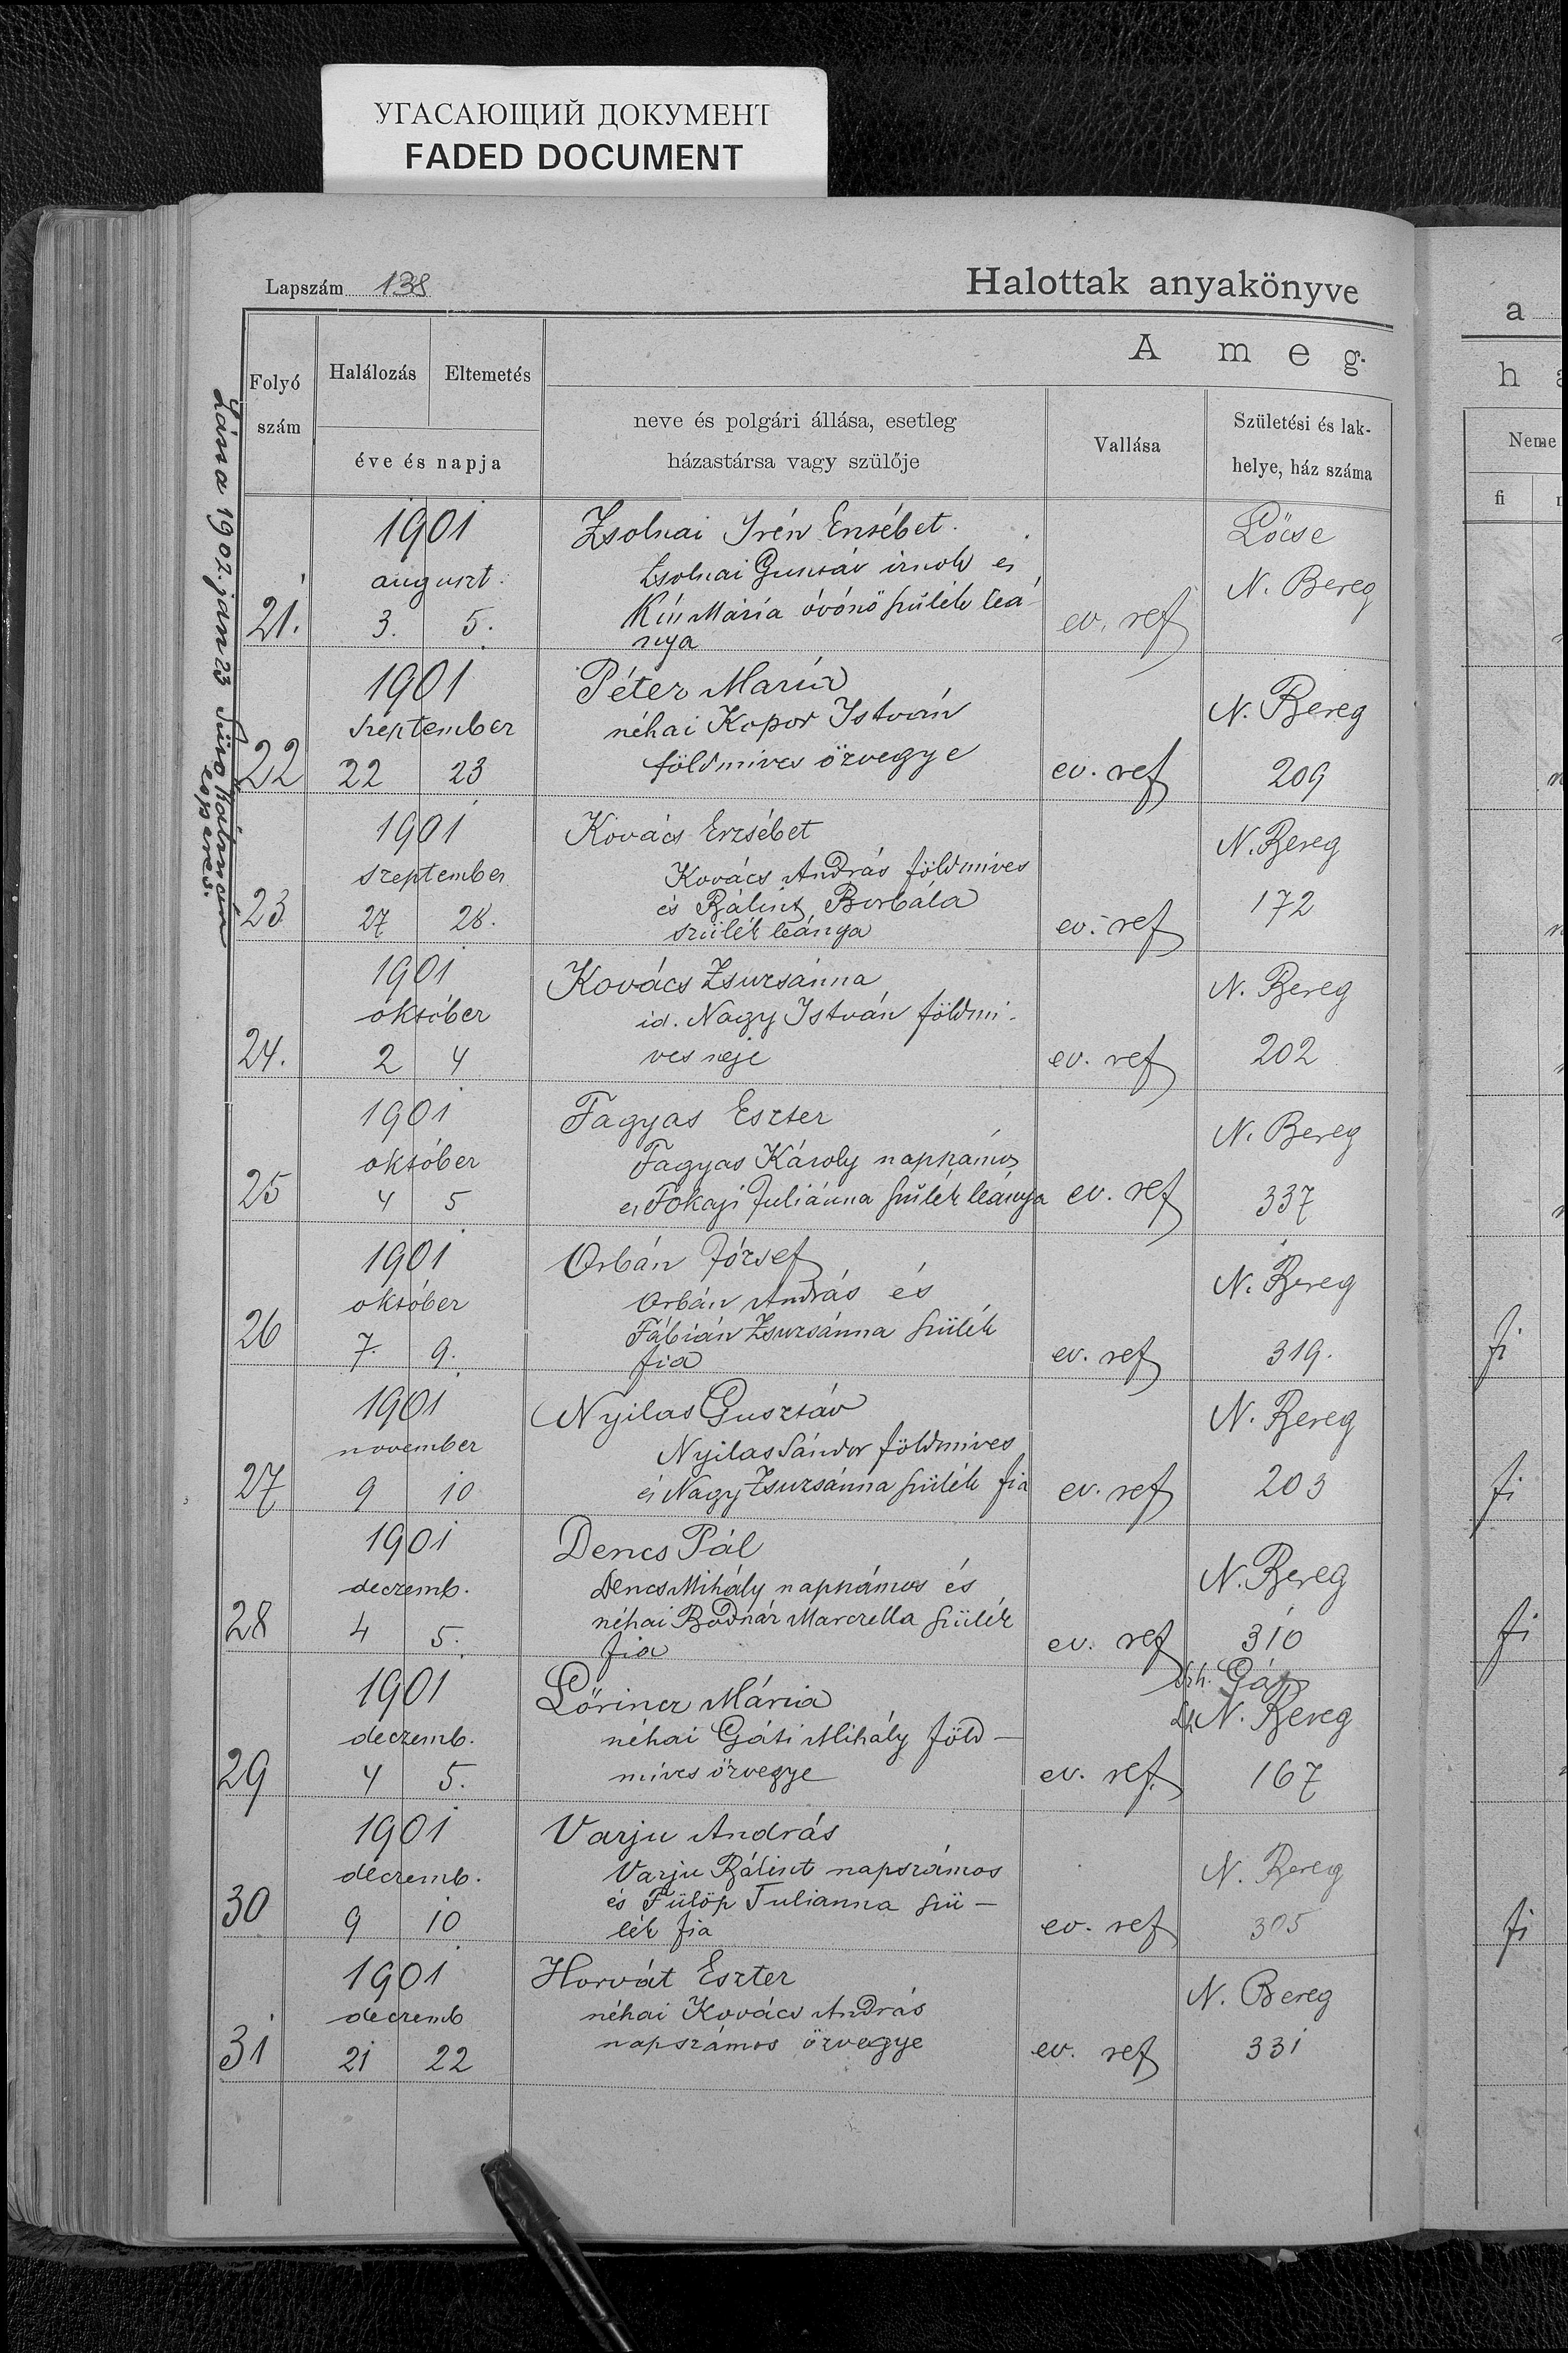 УГАСАЮЩИЙ ДОКУМЕНТ
FADED DOCUMENT
Lapszám 138
Halottak anyakönyve
Folyó szám
Halálozás
Eltemetés
éve és napja
A meg-
neve és polgári állása, esetleg
házastársa vagy szülője
Vallása
Születési és lak-
helye, ház száma
a
h
Neme
fi
Látta 1902. jan 23
esperes.
1901
auguszt.
21. 3. 5.
Zsolnai Irén Erzsébet.
Zsolnai Gusztáv irnok és
Kis Mária óvónő szülék leá-
nya
ev. ref
Lőcse
N. Bereg
1901
szeptember
22 22 23
Péter Mária
néhai Kopor István
földmives özvegye
ev. ref
N. Bereg
209
1901
szeptember
23 27 28.
Kovács Erzsébet
Kovács András földmives
és Bálint Borbála
szülék leánya
ev. ref
N. Bereg
172
1901
október
24. 2 4
Kovács Zsuzsánna
id. Nagy István földmi-
ves neje
ev. ref
N. Bereg
202
1901
október
25 4 5
Fagyas Eszter
Fagyas Károly napszámos
és Tokaji Juliánna szülék leánya
ev. ref
N. Bereg
337
1901
október
26 7. 9.
Orbán József
Orbán András és
Fábián Zsuzsánna szülék
fia
ev. ref
N. Bereg
319.
fi
1901
november
27 9 10
Nyilas Gusztáv
Nyilas Sándor földmives
és Nagy Zsuzsánna szülék fia
ev. ref
N. Bereg
203
fi
1901
deczemb.
28 4 5.
Dencs Pál
Dencs Mihály napszámos és
néhai Bodnár Marczella szülék
fia
ev. ref
N. Bereg
310
fi
1901
deczemb.
29 4 5.
Lőrincz Mária
néhai Gáti Mihály föld-
mives özvegye
ev. ref.
N. Bereg
167
1901
deczemb.
30 9 10
Varju András
Varju Bálint napszámos
és Fülöp Julianna szü-
lék fia
ev. ref
N. Bereg
305
fi
1901
deczemb
31 21 22
Horvát Eszter
néhai Kovács András
napszámos özvegye
ev. ref
N. Bereg
331